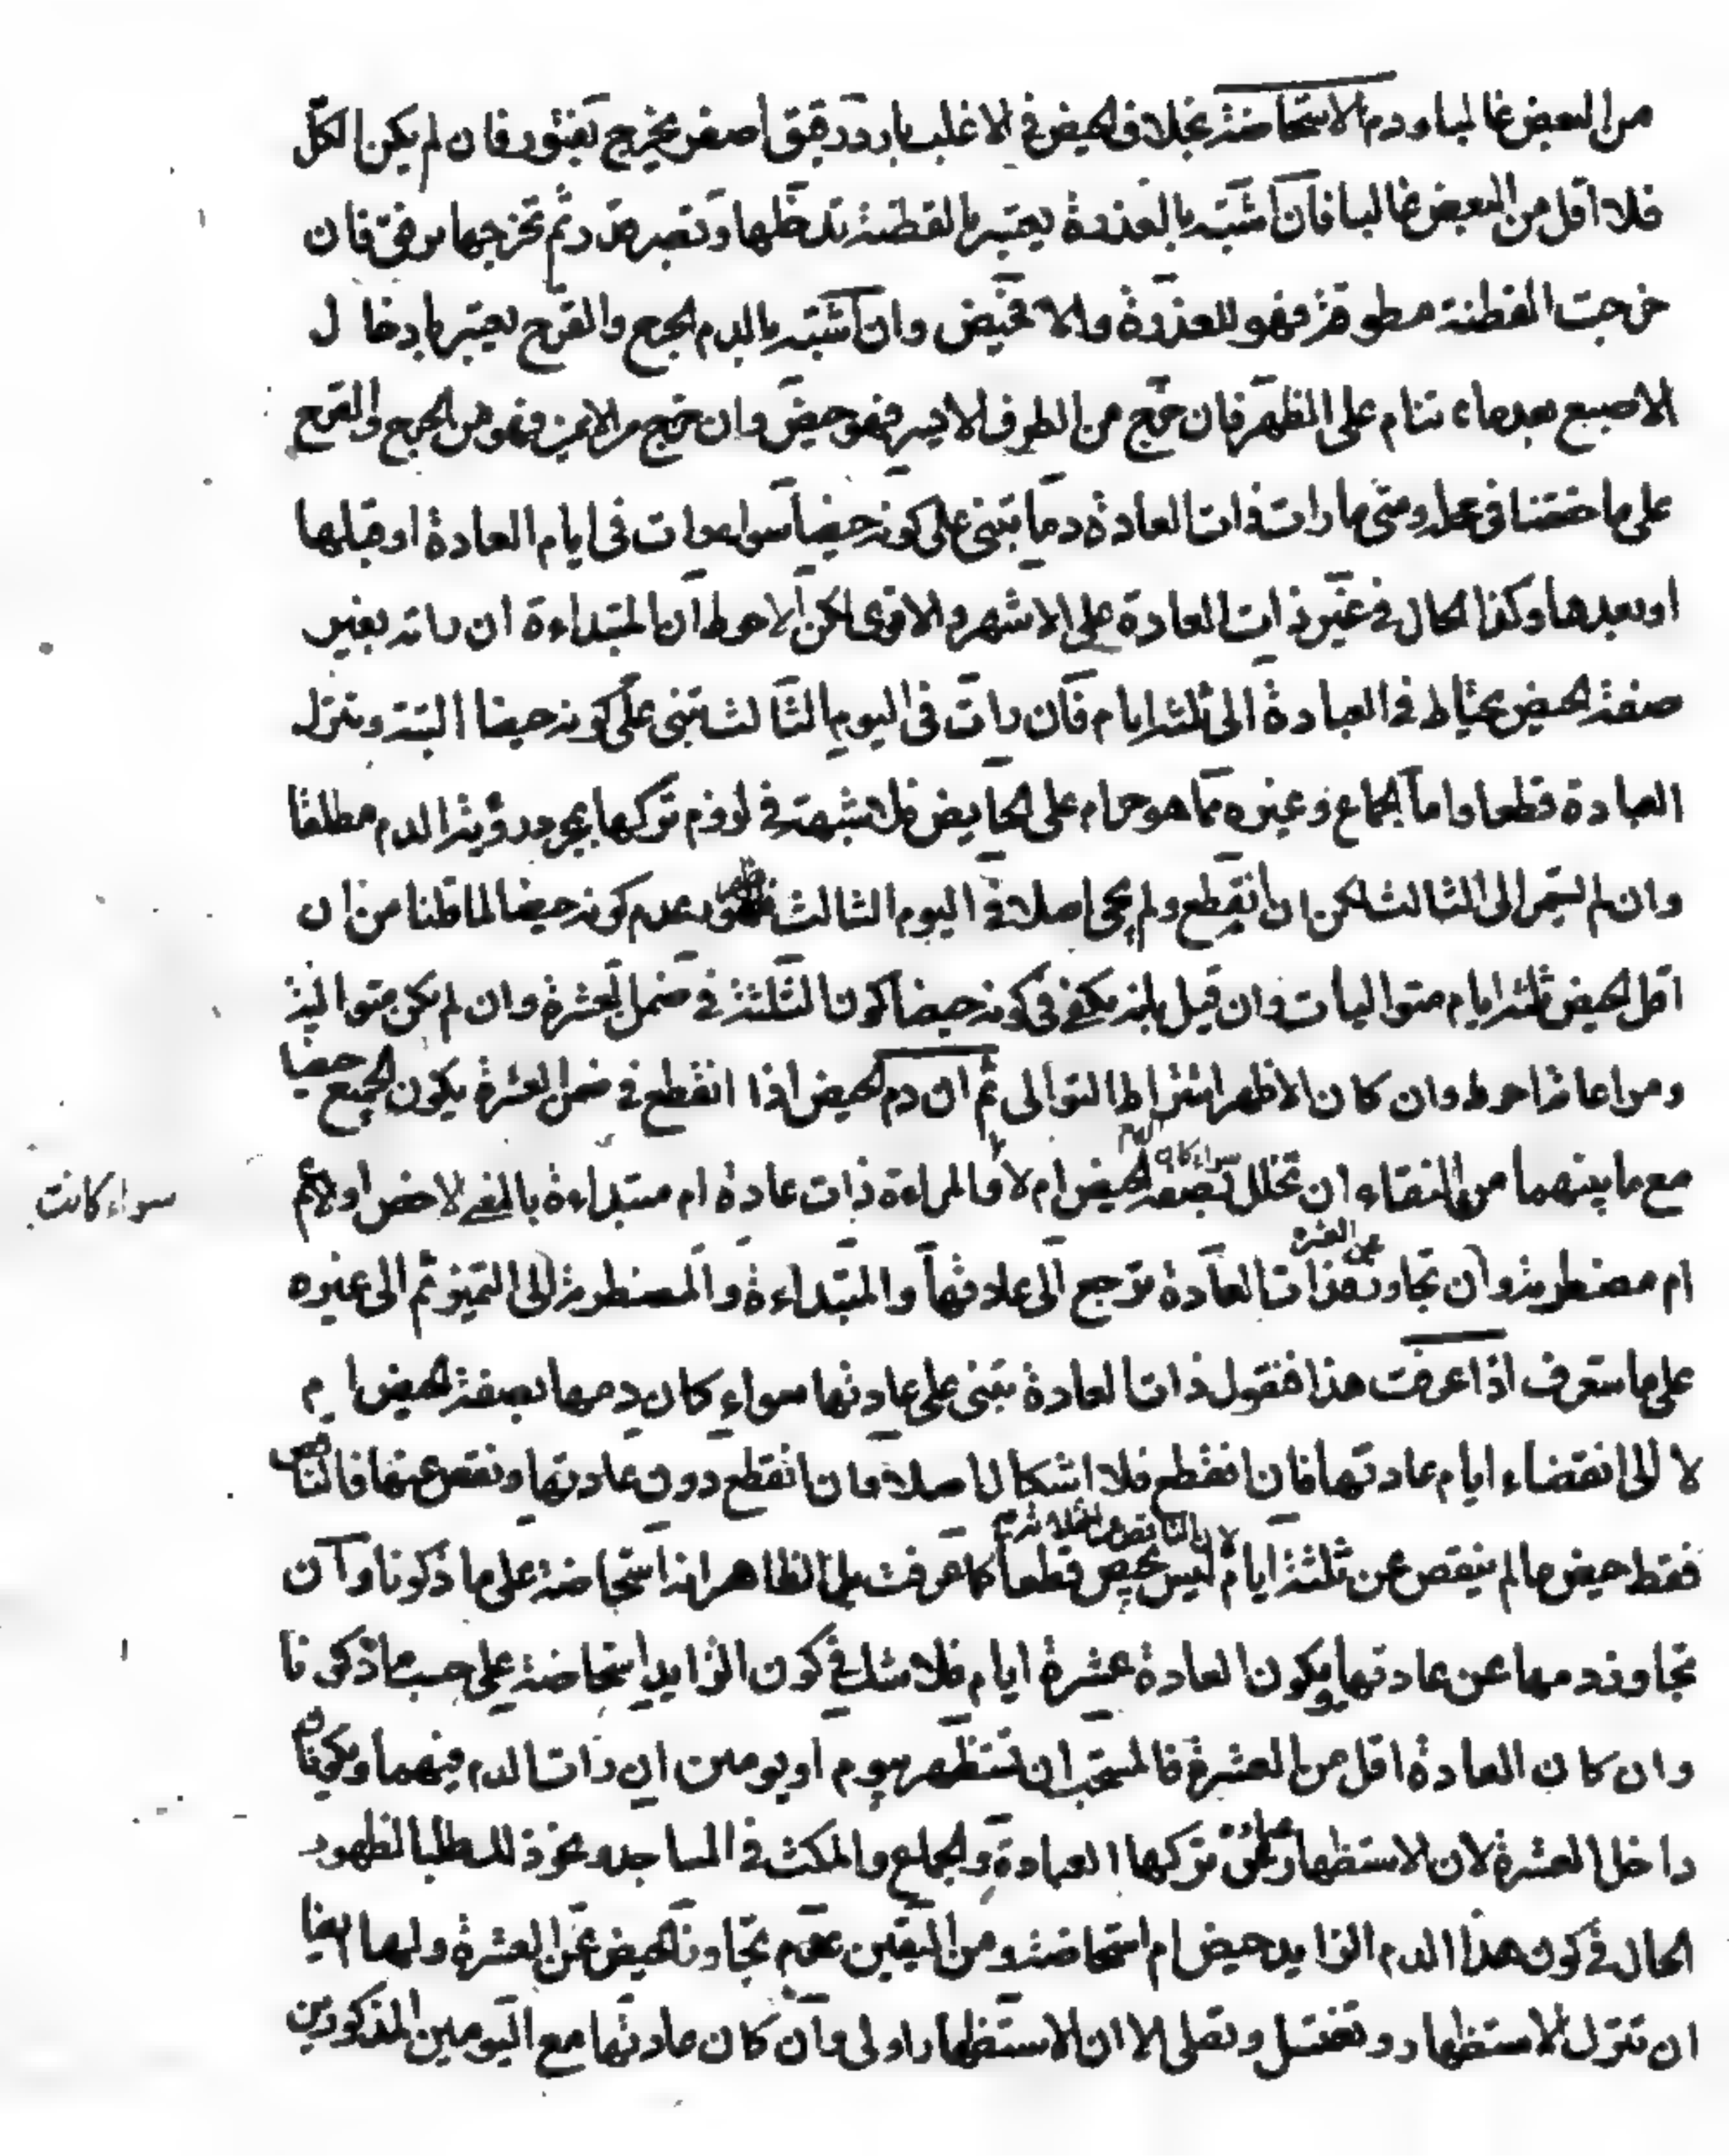 من البعض غالبا ودم الاستحاضة بخلاف الحيض في الاغلب بارد رقيق اصفر يخرج بفتور فان لم يكن الكل
فلا اقل من البعض غالبا فان اشتبه بالعذرة يعتبر بالقطنة تدخلها وتصبر ثم تخرجها برفق فان
خرجت القطنة مطوقة فهو للعذرة والا فحيض وان اشتبه بالدم الجرح والقرح يعتبر بادخال
الاصبع بعد ما تنام على الظهر فان خرج من الطرف الايسر فهو حيض وان خرج من الايمن فهو من الجرح والقرح
على ما حققنا في محله ومتى ما رات ذات العادة دما تبنى على كونه حيضا سواء رات في ايام العادة او قبلها
او بعدها وكذا الحال في غير ذات العادة على الاشهر والاقوى لكن الاحوط ان المبتداءة ان راته بغير
صفة الحيض يحتاط في العبادة الى ثلثة ايام فان رات في اليوم الثالث تبنى على كونه حيضا البتة وتترك
العبادة قطعا واما الجماع وغيره مما هو حرام على الحايض فلا شبهة في لزوم تركها بمجرد رؤية الدم مطلقا
وان لم يستمر الى الثالث لكن ان انقطع ولم يجئ اصلا في اليوم الثالث عدم كونه حيضا لما قلنا من ان
اقل الحيض ثلثة ايام متواليات وان قيل بانه يكفي في كونه حيضا كون الثلثة في ضمن العشرة وان لم يكن متوالية
ومراعاته احوط وان كان الاظهر اشتراط التوالى ثم ان دم الحيض اذا انقطع في ضمن العشرة يكون الجميع حيضا
مع ما بينهما من النقاء ان تخلل سواء كان الدم بصفة الحيض ام لا والمراءة ذات عادة ام مبتداءة بالمعنى الاخص او الاعم
سواء كانت
ام مضطربة وان تجاوز عن العشرة فذات العادة ترجع الى عادتها والمبتداءة والمضطربة الى التميز ثم الى غيره
على ما ستعرف اذا عرفت هذا فنقول ذات العادة تبنى على عادتها سواء كان دمها بصفة الحيض ام
لا الى انقضاء ايام عادتها فان انقطع فلا اشكال اصلا وان انقطع دون عادتها ونقص عنها فالناقص
فقط حيض ما لم ينقص عن ثلثة ايام لان الناقص من الثلاثة ليس بحيض قطعا كما عرفت بل الظاهر انه استحاضة على ما ذكرنا وان
تجاوز دمها عن عادتها ويكون العادة عشرة ايام فلا شك في كون الزايد استحاضة على حسب ما ذكرنا
وان كان العادة اقل من العشرة فالمستحب ان تستظهر بيوم او يومين ان رات الدم فيهما ويكونان
داخل العشرة لان الاستظهار عبارة عن تركها العبادة والجماع والمكث في المساجد ونحو ذلك طلبا لظهور
الحال في كون هذا الدم الزايد حيض ام استحاضة ومن اليقين عدم تجاوز الحيض عن العشرة ولها ايضا
ان تترك الاستظهار وتغتسل وتصلى الا ان الاستظهار اولى وان كان عادتها مع اليومين المذكورين